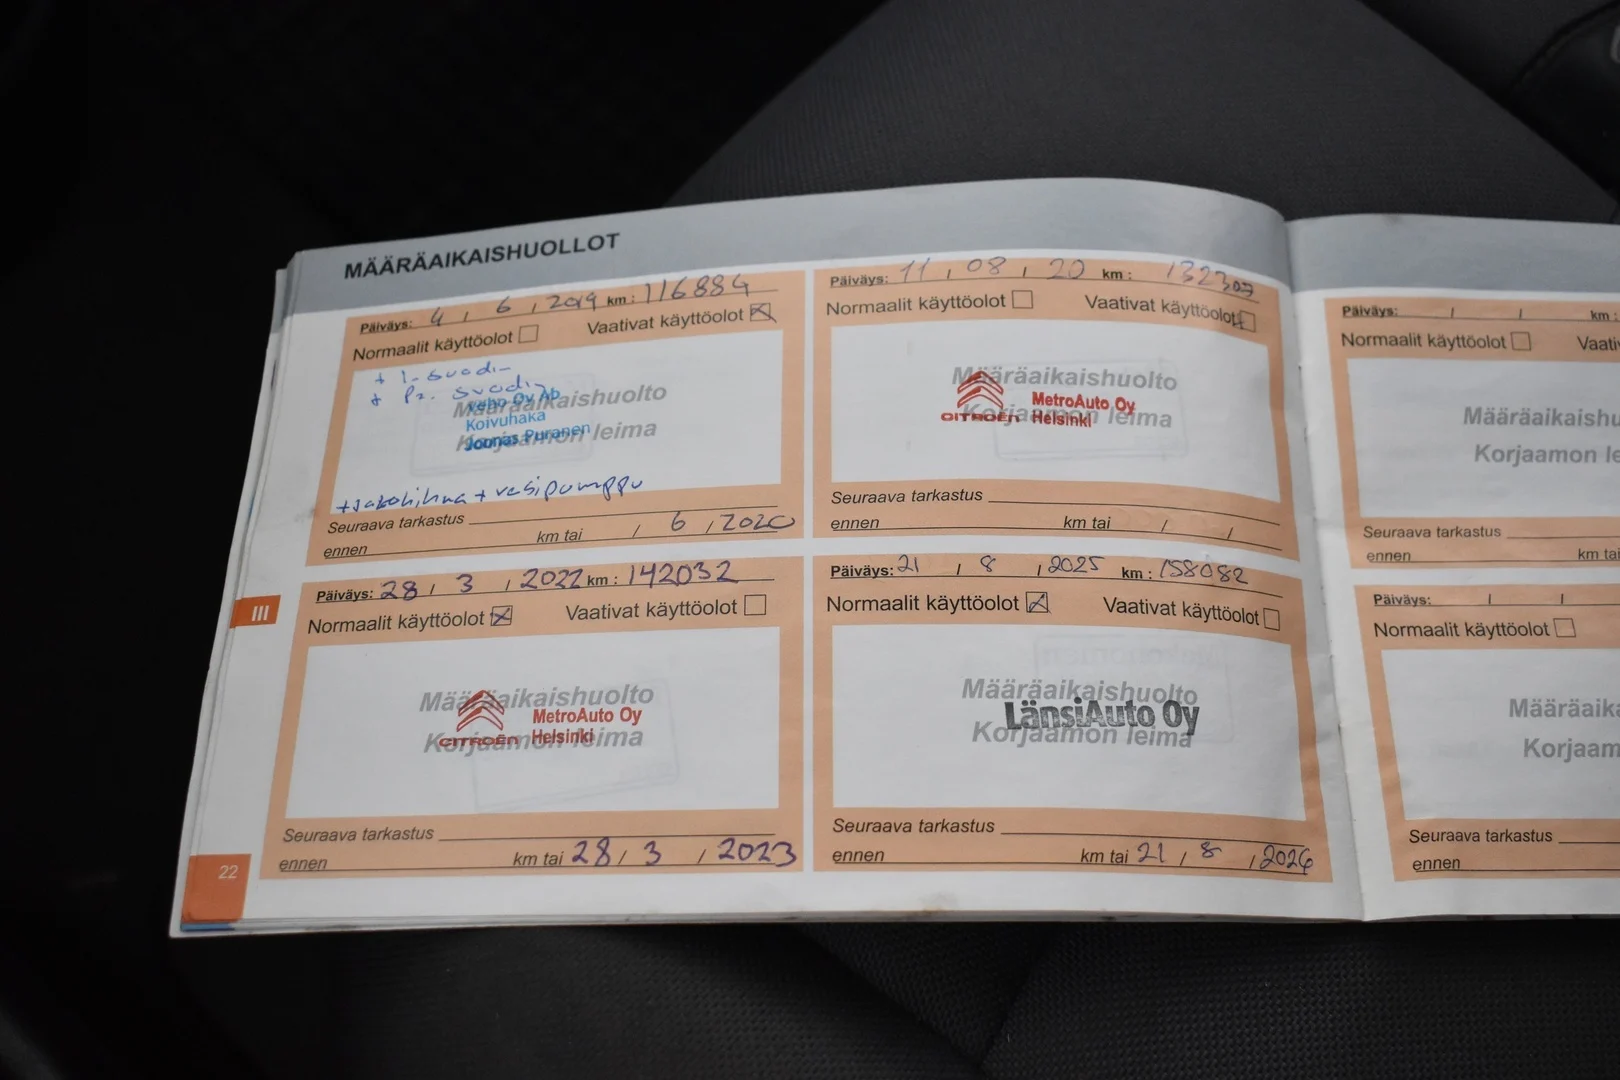 MÄÄRÄAIKAISHUOLLOT
Päiväys: 4 / 6 / 2019 km: 116884
Normaalit käyttöolot Vaativat käyttöolot
+ I-suod.
+ Pz. suodi
Määräaikaishuolto
Veho Oy Ab
Koivuhaka
Korjaamon leima
Joonas Puranen
+ vesipumppu
Seuraava tarkastus
ennen km tai / 6 / 2020
Päiväys: 11 / 08 / 20 km: 132307
Normaalit käyttöolot Vaativat käyttöolot
Määräaikaishuolto
MetroAuto Oy
Korjaamon leima
CITROËN Helsinki
Seuraava tarkastus
ennen km tai / /
III
Päiväys: 28 / 3 / 2022 km: 142032
Normaalit käyttöolot Vaativat käyttöolot
Määräaikaishuolto
MetroAuto Oy
Korjaamon leima
CITROËN Helsinki
Seuraava tarkastus
ennen km tai 28 / 3 / 2023
Päiväys: 21 / 8 / 2025 km: 158082
Normaalit käyttöolot Vaativat käyttöolot
Määräaikaishuolto
LänsiAuto Oy
Korjaamon leima
Seuraava tarkastus
ennen km tai 21 / 8 / 2026
22
Päiväys: / / km:
Normaalit käyttöolot Vaati
Määräaikaishu
Korjaamon le
Seuraava tarkastus
ennen km tai
Päiväys: / /
Normaalit käyttöolot
Määräaika
Korjaam
Seuraava tarkastus
ennen